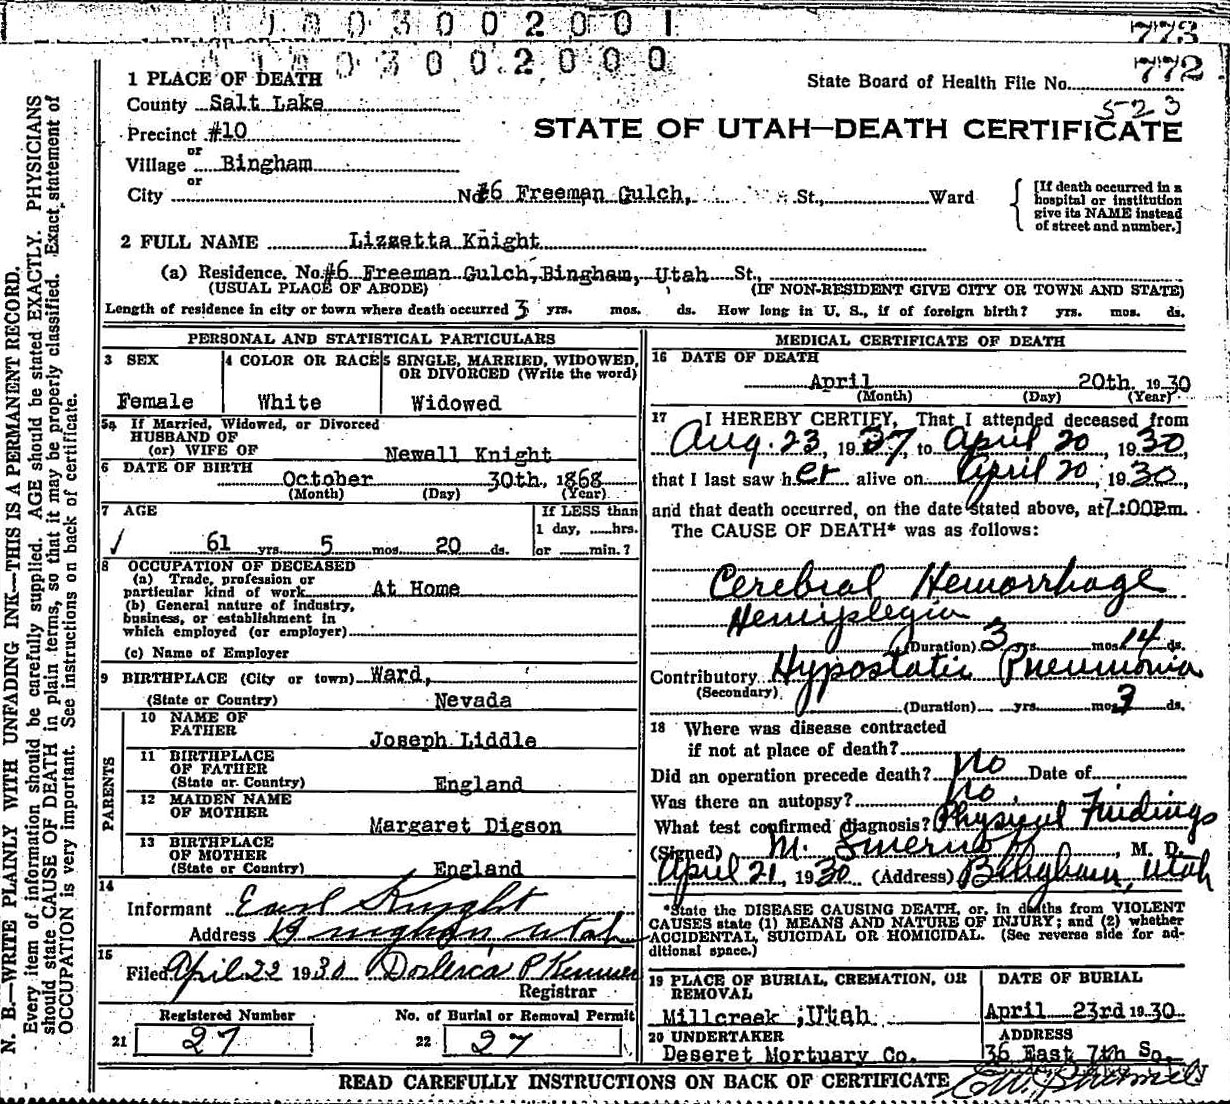 1 0 0 3 0 0 2 0 0 1
773
1 0 0 3 0 0 2 0 0 0
772
1 PLACE OF DEATH
State Board of Health File No.
523
County Salt Lake
Precinct #10
STATE OF UTAH—DEATH CERTIFICATE
or
Village Bingham
or
City No. #6 Freeman Gulch, St., Ward
[If death occurred in a hospital or institution give its NAME instead of street and number.]
2 FULL NAME Lizzetta Knight
(a) Residence. No. #6 Freeman Gulch, Bingham, Utah St.,
(USUAL PLACE OF ABODE) (IF NON-RESIDENT GIVE CITY OR TOWN AND STATE)
Length of residence in city or town where death occurred 3 yrs. mos. ds. How long in U. S., if of foreign birth? yrs. mos. ds.
PERSONAL AND STATISTICAL PARTICULARS
3 SEX
Female
4 COLOR OR RACE
White
5 SINGLE, MARRIED, WIDOWED, OR DIVORCED (Write the word)
Widowed
5a If Married, Widowed, or Divorced
HUSBAND OF
(or) WIFE OF Newall Knight
6 DATE OF BIRTH
October 30th, 1868
(Month) (Day) (Year)
7 AGE
61 yrs 5 mos 20 ds.
If LESS than
1 day, hrs.
or min.?
8 OCCUPATION OF DECEASED
(a) Trade, profession or
particular kind of work At Home
(b) General nature of industry,
business, or establishment in
which employed (or employer)
(c) Name of Employer
9 BIRTHPLACE (City or town) Ward,
(State or Country) Nevada
PARENTS
10 NAME OF
FATHER Joseph Liddle
11 BIRTHPLACE
OF FATHER
(State or Country) England
12 MAIDEN NAME
OF MOTHER Margaret Digson
13 BIRTHPLACE
OF MOTHER
(State or Country) England
14
Informant Earl Knight
Address Bingham, Utah
15
Filed April 22 1930
Registrar
Registered Number
21 27
No. of Burial or Removal Permit
22 27
MEDICAL CERTIFICATE OF DEATH
16 DATE OF DEATH
April 20th. 1930
(Month) (Day) (Year)
17 I HEREBY CERTIFY, That I attended deceased from
Aug. 23, 1937, to April 20, 1930,
that I last saw her alive on April 20, 1930,
and that death occurred, on the date stated above, at 7:00P.m.
The CAUSE OF DEATH* was as follows:
Cerebral Hemorrhage
Hemiplegia
(Duration) 3 yrs. mos 14 ds.
Contributory Hypostatic Pneumonia
(Secondary)
(Duration) yrs. mos 3 ds.
18 Where was disease contracted
if not at place of death?
Did an operation precede death? No Date of
Was there an autopsy? No.
What test confirmed diagnosis? Physical Findings
(Signed) M. Smernoff, M. D.
April 21, 1930 (Address) Bingham, Utah
*State the DISEASE CAUSING DEATH, or, in deaths from VIOLENT
CAUSES state (1) MEANS AND NATURE OF INJURY; and (2) whether
ACCIDENTAL, SUICIDAL OR HOMICIDAL. (See reverse side for additional space.)
19 PLACE OF BURIAL, CREMATION, OR
REMOVAL
Millcreek, Utah
DATE OF BURIAL
April 23rd 1930.
20 UNDERTAKER
Deseret Mortuary Co.
ADDRESS
36 East 7th So.
READ CAREFULLY INSTRUCTIONS ON BACK OF CERTIFICATE
N. B.—WRITE PLAINLY WITH UNFADING INK—THIS IS A PERMANENT RECORD.
Every item of information should be carefully supplied. AGE should be stated EXACTLY. PHYSICIANS
should state CAUSE OF DEATH in plain terms, so that it may be properly classified. Exact statement of
OCCUPATION is very important. See instructions on back of certificate.